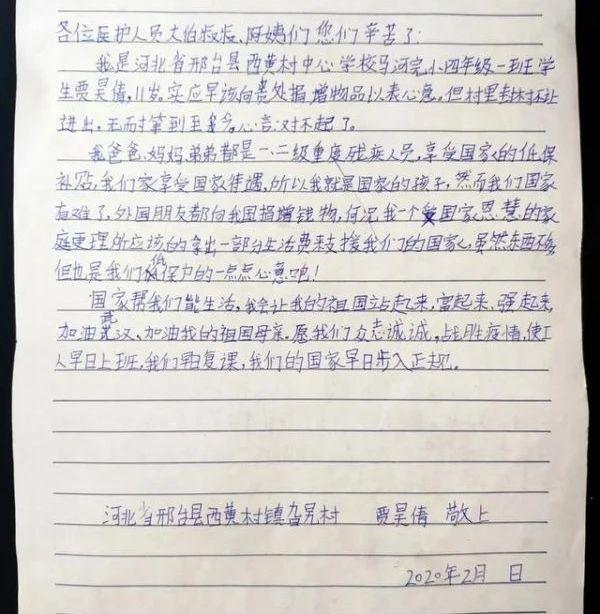 各位医护人员大伯叔叔、阿姨们 您们辛苦了:
我是河北省邢台县西黄村中心学校马河完小四年级一班学
生贾昊倩,11岁。实应早该向贵处捐增物品以表心意。但村里封村不让
进出,无耐拿到至今。心言:对不起了。
我爸爸、妈妈、弟弟都是一、二级重度残疾人员,享受国家的低保
补贴,我们家享受国家待遇,所以我就是国家的孩子,然而我们国家
有难了,外国朋友都向我国捐增钱物,何况我一个受国家恩惠的家
庭更理所应该的拿出一部分生活费来支援我们的国家,虽然东西不多
但也是我们低保户的一点点心意吧!
国家帮我们能生活,我会让我的祖国立占起来,富起来,强起来,
加油武汉、加油我的祖国母亲。愿我们众志诚诚,战胜疫情,使工
人早日上班,我们早日复课,我们的国家早日步入正规。
河北省邢台县西黄村镇 村 贾昊倩 敬上
2020年2月 日